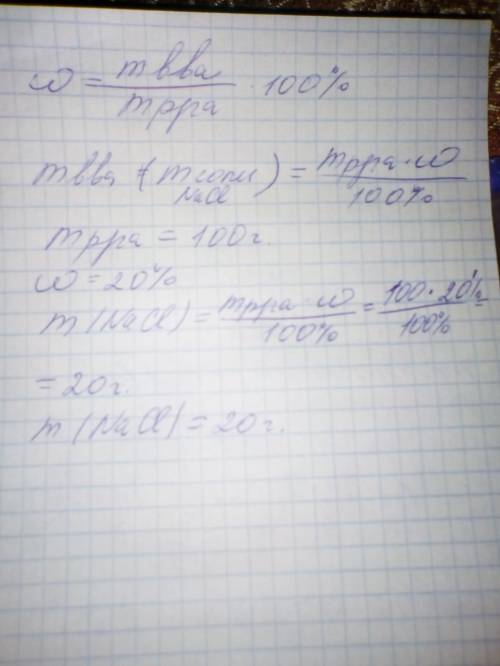 ω = m вва / m рра · 100%
m вва = (m соли NaCl) = m рра · ω / 100%
m рра = 100г.
ω = 20%
m (NaCl) = m рра · ω / 100% = 100 · 20% / 100% =
= 20г.
m (NaCl) = 20г.